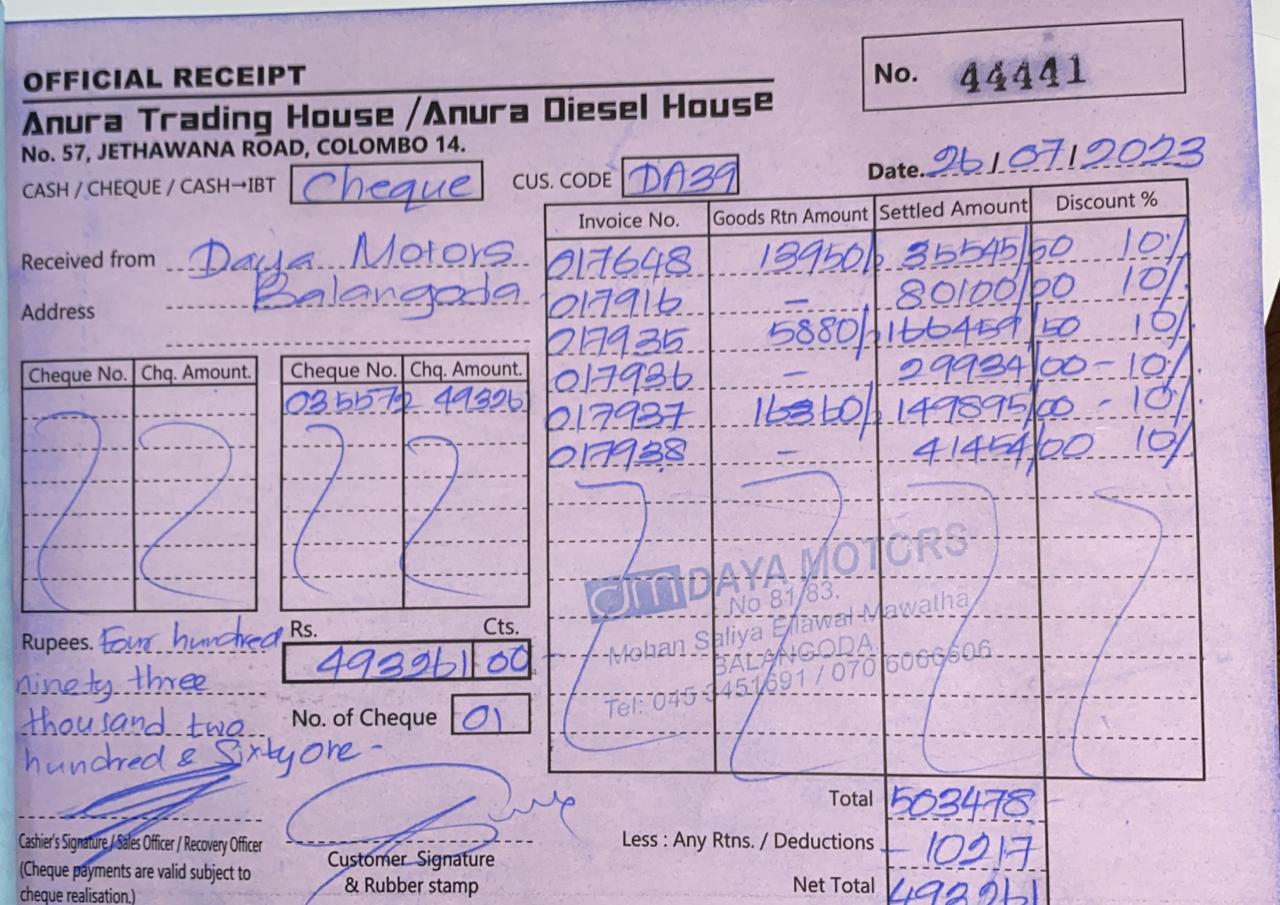 OFFICIAL RECEIPT
No. 44441
Anura Trading House /Anura Diesel House
No. 57, JETHAWANA ROAD, COLOMBO 14.
Date. 26/07/2023
CASH / CHEQUE / CASH→IBT Cheque CUS. CODE DA39
Invoice No. Goods Rtn Amount Settled Amount Discount %
Received from Daya Motors
Address Balangoda
017648 13950/- 35545/50 10%
017916 - 80100/00 10%
017935 5880/- 166459/50 10%
017936 - 29934/00 - 10%
017937 16360/- 149895/00 - 10%
017938 - 41454/00 10%
Cheque No. Chq. Amount. Cheque No. Chq. Amount.
035572 493261
DAYA MOTORS
No 81/83.
Mohan Saliya Ellawal Mawatha
BALANGODA
Tel: 045 3451691 / 070 6066606
Rupees. Four hundred
ninety three
thousand two
hundred & Sixty one -
Rs. Cts.
493261 00
No. of Cheque 01
Total 503478
Less : Any Rtns. / Deductions - 10217
Net Total 493261
Cashier's Signature / Sales Officer / Recovery Officer
(Cheque payments are valid subject to
cheque realisation.)
Customer Signature
& Rubber stamp